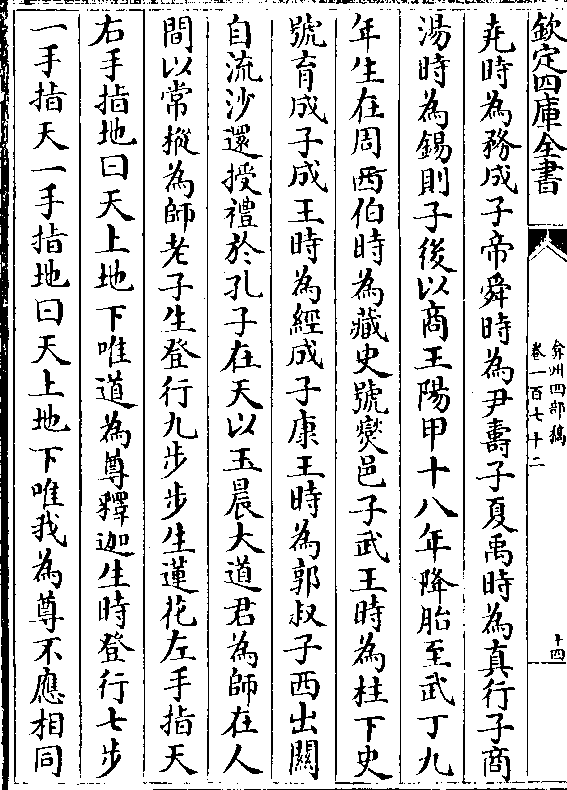 欽定四庫全書
弇州四部稿
卷一百七十二
十四
堯時為務成子帝舜時為尹壽子夏禹時為真行子商
湯時為錫則子後以商王陽甲十八年降胎至武丁九
年生在周西伯時為藏史號爕邑子武王時為柱下史
號育成子成王時為經成子康王時為郭叔子西出關
自流沙還授禮於孔子在天以玉晨大道君為師在人
間以常摐為師老子生登行九步步生蓮花左手指天
右手指地曰天上地下唯道為尊釋迦生時登行七步
一手指天一手指地曰天上地下唯我為尊不應相同